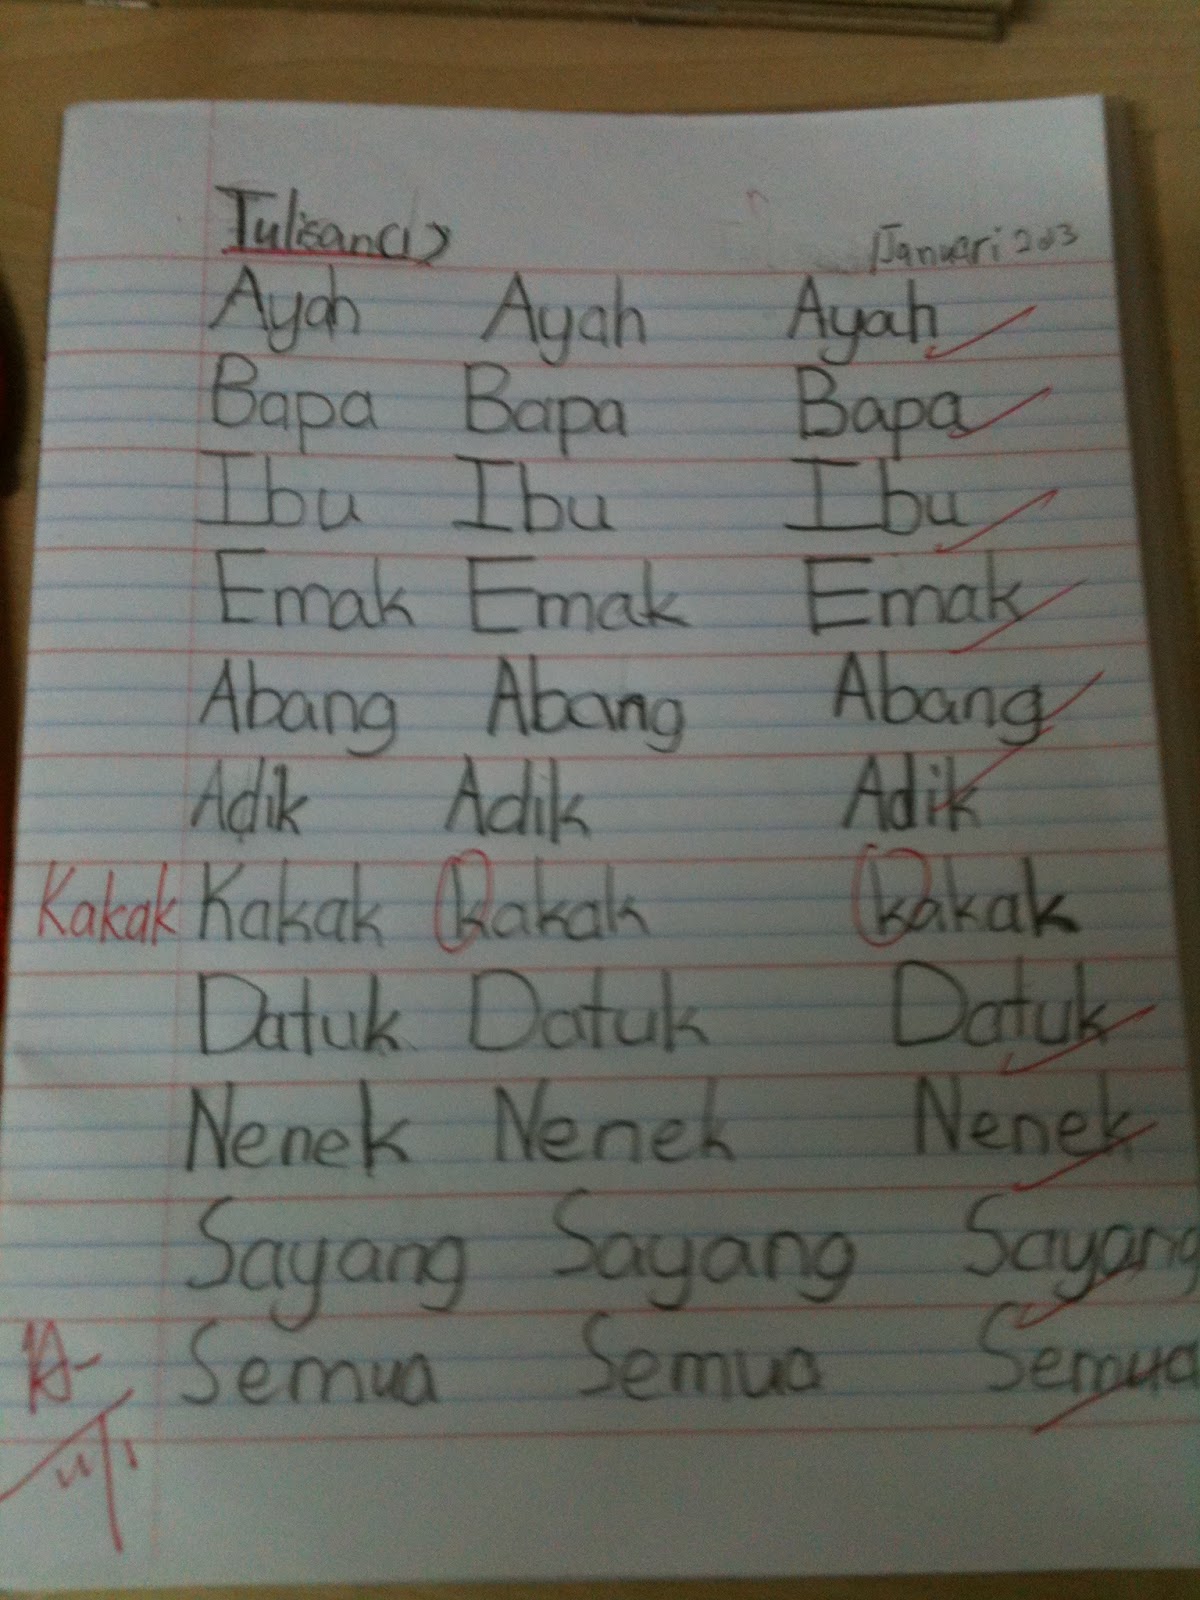 Tulisan(1)
Januari 2013
Ayah Ayah Ayah
Bapa Bapa Bapa
Ibu Ibu Ibu
Emak Emak Emak
Abang Abang Abang
Adik Adik Adik
Kakak Kakak kakak kakak
Datuk Datuk Datuk
Nenek Nenek Nenek
Sayang Sayang Sayang
Semua Semua Semua
A-